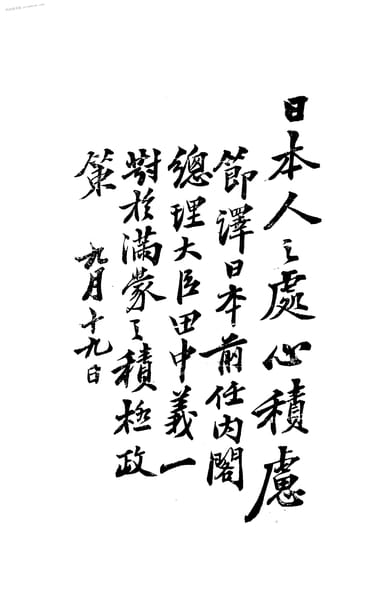 日本人之處心積慮
節譯日本前任内閣
總理大臣田中義一
對於滿蒙之積極政
策 九月十九日